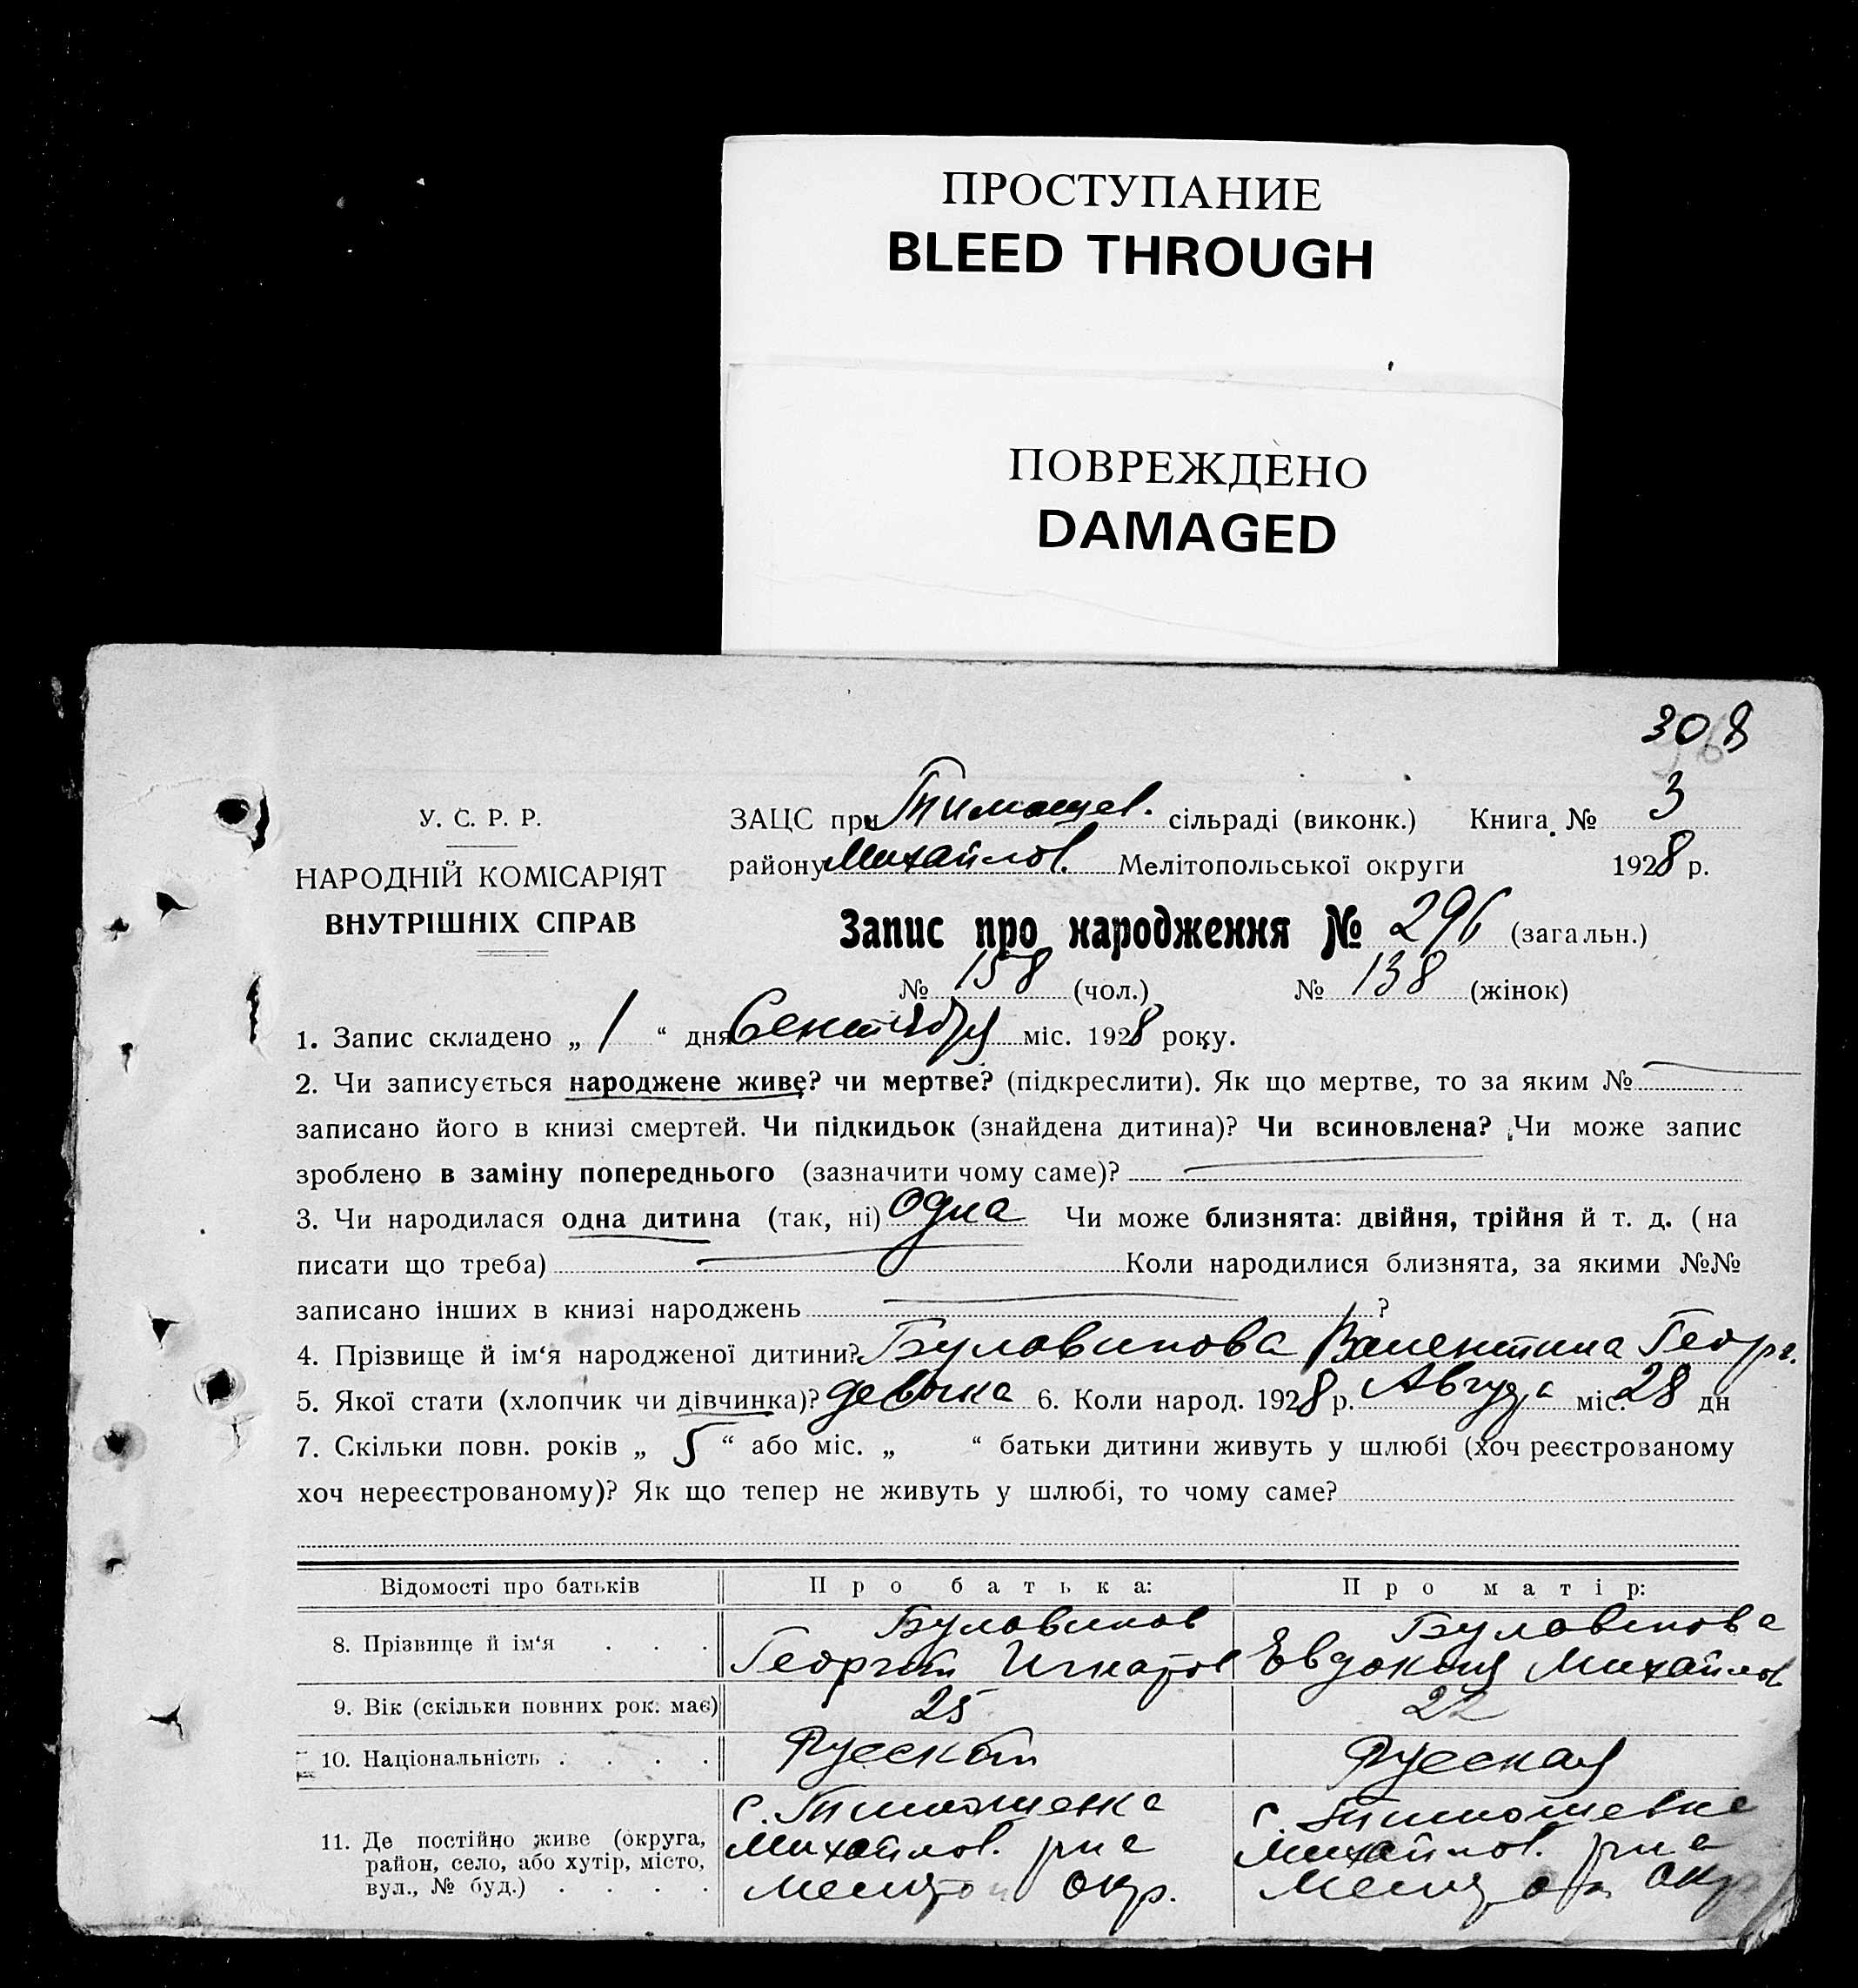 ПРОСТУПАНИЕ
BLEED THROUGH
ПОВРЕЖДЕНО
DAMAGED
308
У. С. Р. Р.
НАРОДНІЙ КОМІСАРІЯТ
ВНУТРІШНІХ СПРАВ
ЗАЦС при Тимошев. сільраді (виконк.) Книга № 3
району Михайлов. Мелітопольської округи 1928 р.
Запис про народження № 296 (загальн.)
№ 158 (чол.) № 138 (жінок)
1. Запис складено „ 1 “ дня Сентября міс. 1928 року.
2. Чи записується народжене живе? чи мертве? (підкреслити). Як що мертве, то за яким №
записано його в книзі смертей. Чи підкидьок (знайдена дитина)? Чи всиновлена? Чи може запис
зроблено в заміну попереднього (зазначити чому саме)?
3. Чи народилася одна дитина (так, ні) Одна Чи може близнята: двійня, трійня й т. д. (на
писати що треба) Коли народилися близнята, за якими №№
записано інших в книзі народжень ?
4. Прізвище й ім‘я народженої дитини? Булавинова Валентина Георг.
5. Якої стати (хлопчик чи дівчинка)? девочка 6. Коли народ. 1928 р. Августа міс. 28 дн
7. Скільки повн. років „ 5 “ або міс. „ “ батьки дитини живуть у шлюбі (хоч реєстрованому
хоч нереєстрованому)? Як що тепер не живуть у шлюбі, то чому саме?
Відомості про батьків Про батька: Про матір:
8. Прізвище й ім‘я . . . Булавинов Георгий Игнатов Булавинова Евдокия Михайлов
9. Вік (скільки повних рок. має) 25 22
10. Національність . . . . Русский Русская
11. Де постійно живе (округа, район, село, або хутір, місто, вул., № буд.) . . . .
с. Тимошевка с. Тимошевка
Михайлов. р-на Михайлов. р-на
Мелитоп окр. Мелитоп окр